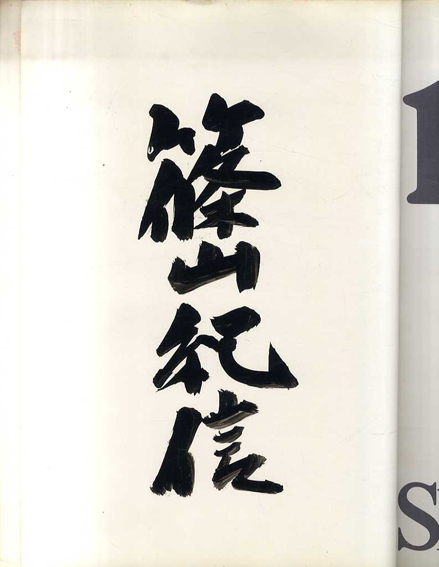 篠山紀信
1
S